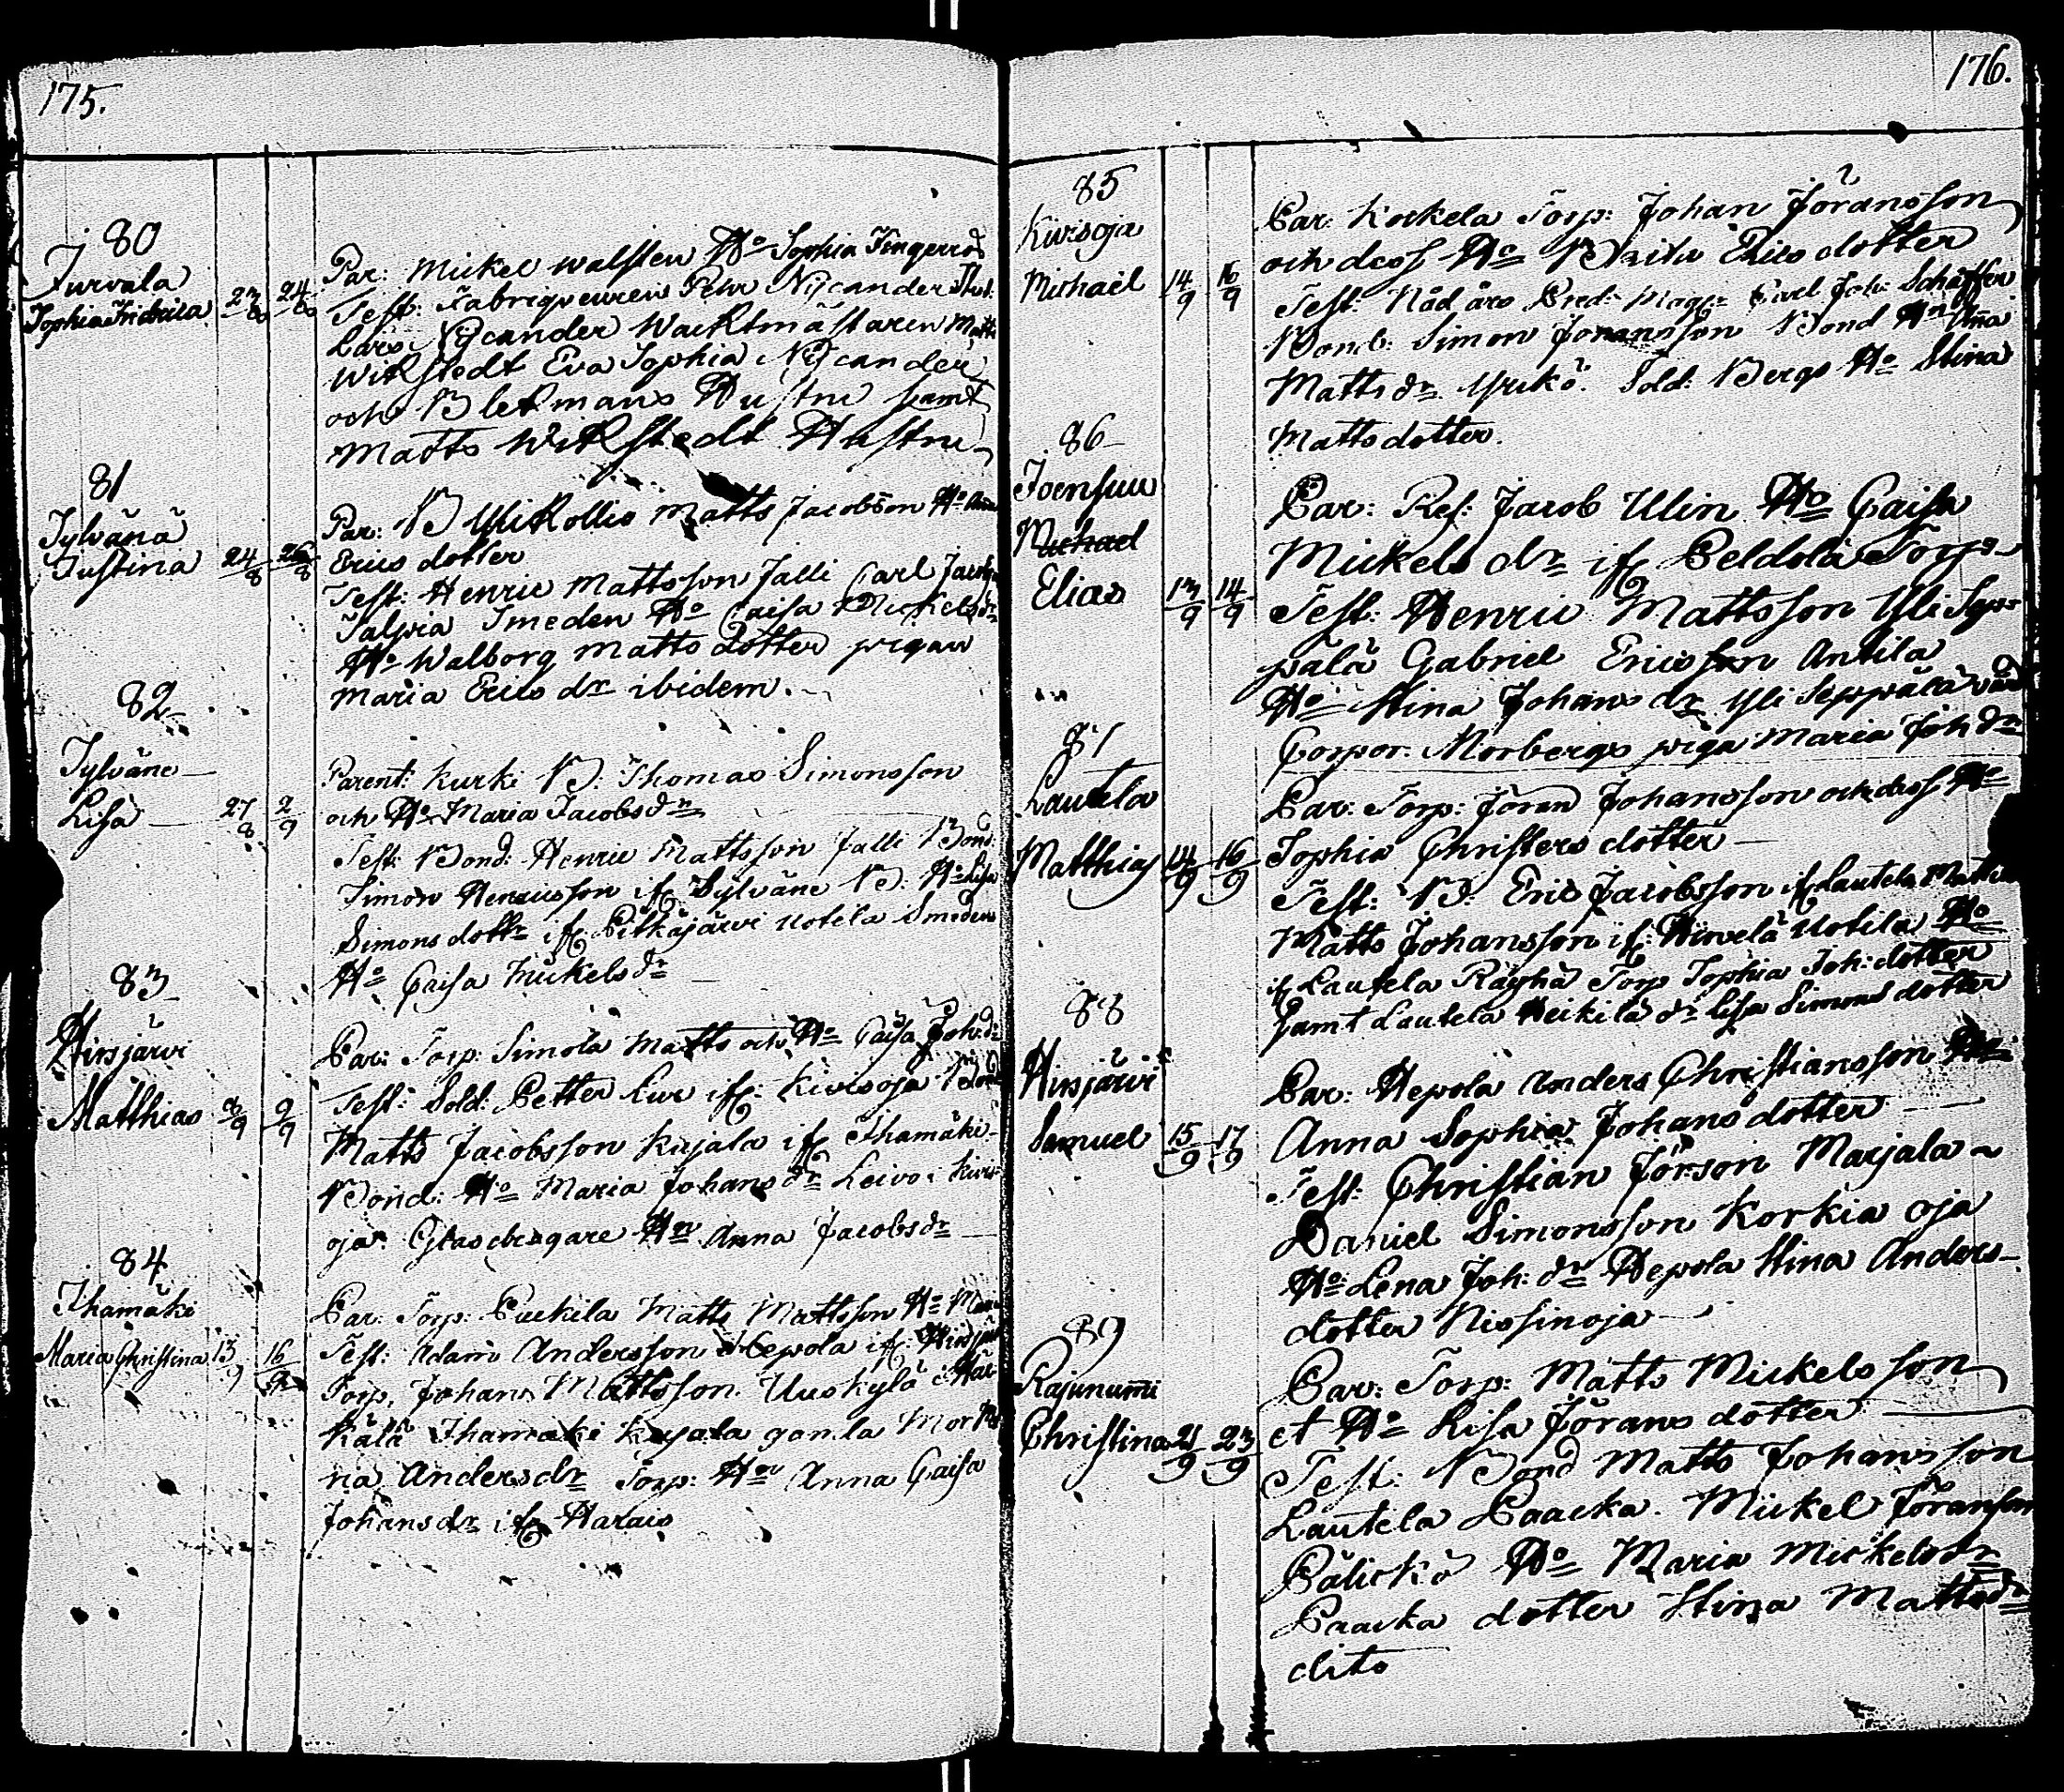 175.
80
Turvala
Sophia Fridrica 23/8 24/8
Par: Mickel Walsten Ho Sophia Fingerros
Test: Fabriqueuren Pehr Nijcander Stud:
Lars Nijcander Wacktmästaren Matts
Wikstedt Eva Sophia Nijcander
och Blekmans Hustru samt
Matts Wikstedt Hustru
81
Sylvänä
Justina 24/8 26/8
Par: B Matts Jacobsson Ho
Erics dotter
Test: Henric Mattsson Jalli Carl
Talpia Smeden Ho Caisa Mickelsdr
Ho Walborg Matts dotter pigan
Maria Erics dr ibidem.
82
Sylväne
Lisa 27/8 2/9
Parent: Kurki B: Thomas Simonsson
och Ho Maria Jacobsdr
Test: Bond: Henric Mattsson Jalli Bond:
Simon Henricsson if Sylväne B: Ho Lisa
Simons dottr if Pitkäjärvi Uotila Smedens
Ho Caisa Mickelsdr
83
Hirsjärvi
Matthias 8/9 9/9
Par: Torp: Simola Matts och Ho Caisa Joh:dr
Test: Sold: Petter Kur if: Kivisoja Bond
Matts Jacobsson Kujala if Ihamäki
Bond: Ho Maria Johans dr Leivo i Kivis
oja Glasdragare Hn Anna Jacobsdr
84
Ihamäki
Maria Christina 15/9 16/9
Par: Torp: Puckila Matts Mattsson Ho
Test: Adam Andersson Hepola if:
Torp, Johan Mattsson Uuskylä i Här
kälä Ihamäki Kujala gamla
na Andersdr Torp: Hn Anna Caisa
Johans dr if Harais
176.
85
Kivisoja
Michaël 14/9 16/9
Par: Kockela Torp: Johan Jöransson
och dess Ho Brita Erics dotter
Test: Nåd års Pred: Mag: Carl Joh: Schäffer
Bond: Simon Jöransson Bond Hn Aña
Matts dr Yrikö. Sold: Bergs Ho Stina
Matts dotter.
86
Joensuu
Michael
Elias 13/9 14/9
Par: Ref: Jacob Ulin Ho Caisa
Mickels dr if Peldola Torp
Test: Henric Mattsson Yli Sep=
pälä Gabriel Ericsson Antila
Ho Stina Johans dr Yli Seppälä
Corpor: Morbergs piga Maria Joh dr
87
Lautela
Matthias 14/9 16/9
Par: Torp: Jöran Johansson och dess Ho
Sophia Christers dotter
Test: B: Eric Jacobsson if Lautela
Matts Johansson if: Hirvelä Uotila Ho
if Lautela Räyhä Torp Sophia Joh: dotter
samt Lautela Heikilä dr Lisa Simons dotter
88
Hirsjärvi
Samuel 15/9 17/9
Par: Hepola Anders Christiansson Ho
Anna Sophia Johans dotter
Test: Christian Jörson Marjala
Daniel Simonsson Korkia oja
Ho Lena Joh: dr Hepola Stina Anders
dotter Nissinoja
89
Rajunum̃i
Christina 21/9 23/9
Par: Torp: Matts Mickelsson
et Ho Lisa Jörans dotter
Test: Bond Matts Johansson
Lautela Paacka. Mickel Jöransson
Pälickö Ho Maria Mickelsdr
Paacka dotter Stina Mattsdr
dito